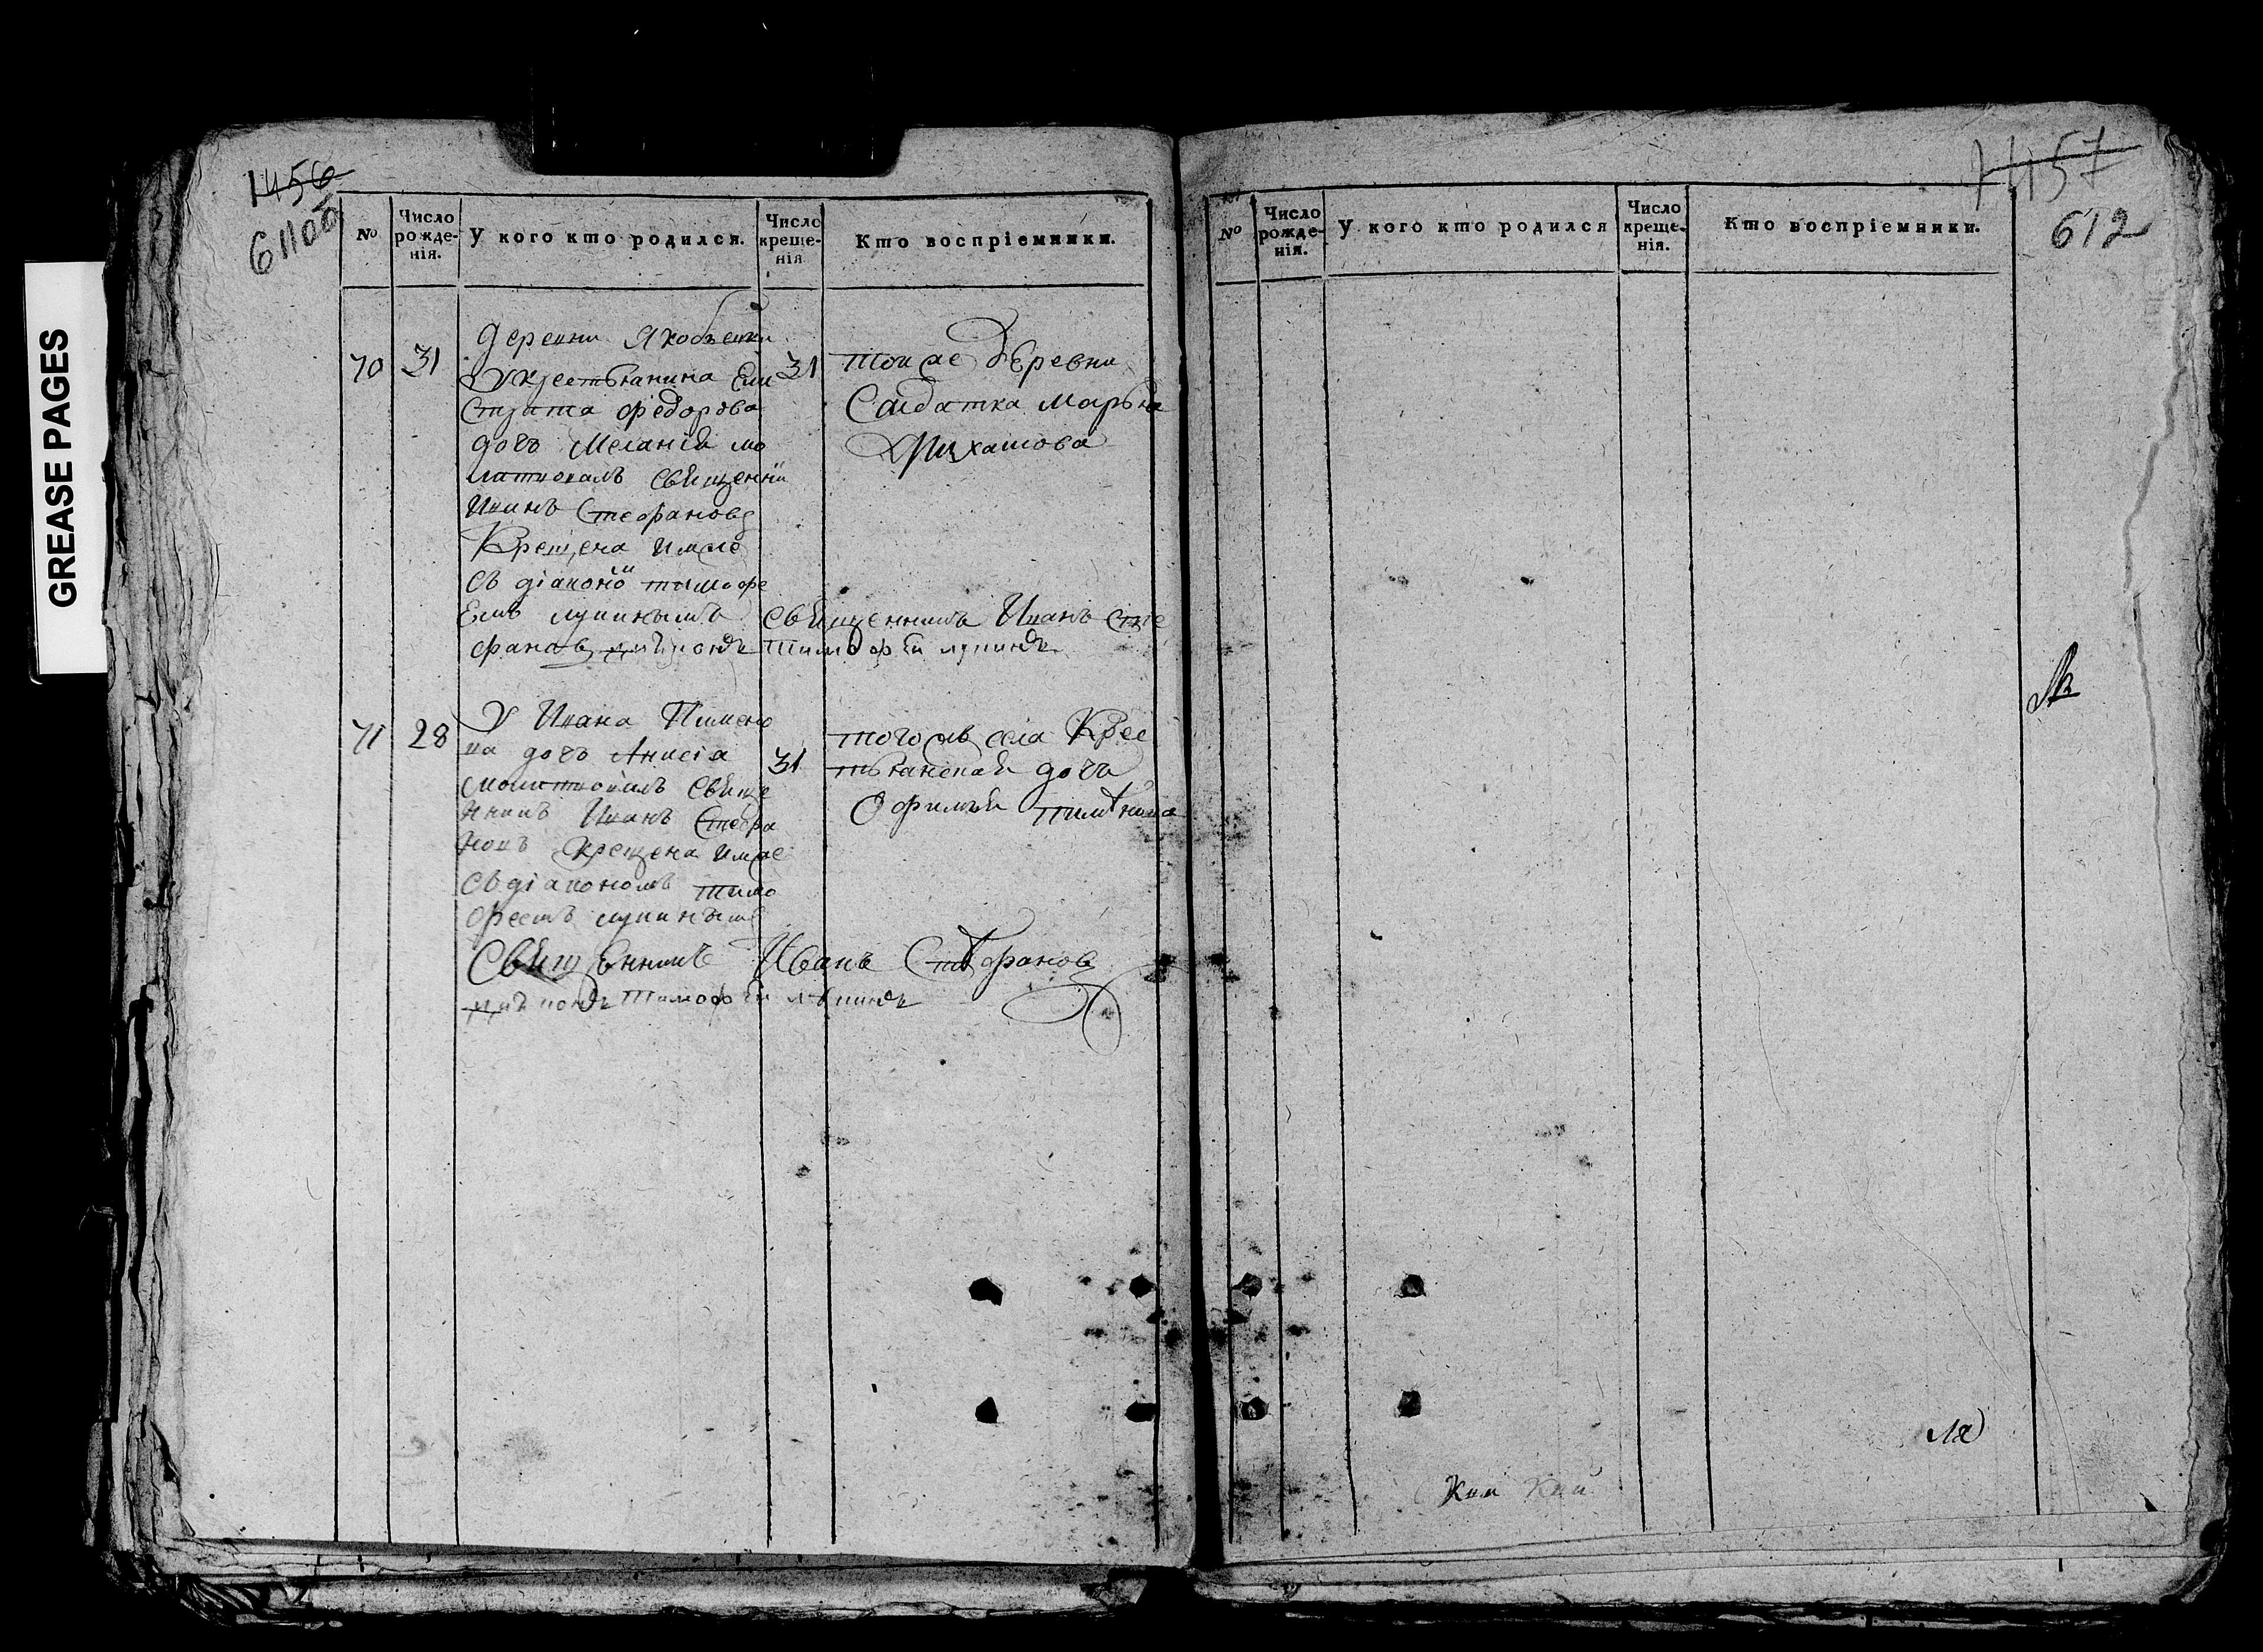 GREASE PAGES
1456
611об
№
Число рожденія.
У кого кто родился.
Число крещенія
Кто воспріемники.
70
31
деревни Яковлевки
У крестьянина Ели
страта федорова
дочь Меланія мо
литвовалъ священни
Иванъ Стефановъ
Крещена имже
съ діакономъ тимофе
емъ лупинымъ
31
тои же деревни
Салдатка марья
Михаилова
священникъ Иванъ Сте
фановъ діконъ тимофей лупинъ
71
28
У Ивана Пимено
ва дочь Анисія
молитвовалъ свяще
нникъ Иванъ Стефа
новъ крещена имже
съ діакономъ тимо
феемъ лупинымъ
31
того жъ села Крес
тьянская дочь
Офимья
Священникъ Иванъ Стефановъ
діконъ тимофей лупинъ
1457
612
№
Число рожденія.
У кого кто родился
Число крещенія.
Кто воспріемники.